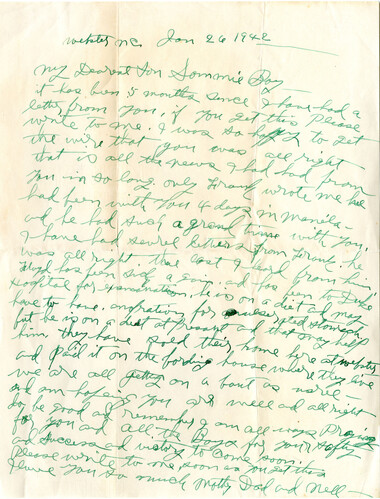 Webster N.C. Jan 26 1942
My Dearest Son Sommie Ray
it has been 5 months since I have had a
letter from you, if you get this Please
write to me. I was so happy to get
the wire that you was all right
that is all the news I had had from
you in so long, only Frank wrote me he
had been with you 4 days in manila -
ad he had such a grand time with you,
I have had several letters from Frank, he
was all right the last I herd from him,
has been sick a gain, ad has been to Duke
Hospital for examination, he is on a diet ad may
have to have, an opration, for stomach
but he is on a diet at present ad that may help
him, they have sold their home here at webster
and paid it on the bording house where they live
we are all getting on a bout as usual -
ad am hoping you are well ad all right
so be good ad remember I am all ways Praying
for you ad all the Boys for your Safty
ad Successed victory to come soon.
Please write to me soon as you get this
I love you so much Mother Dad and Nell -